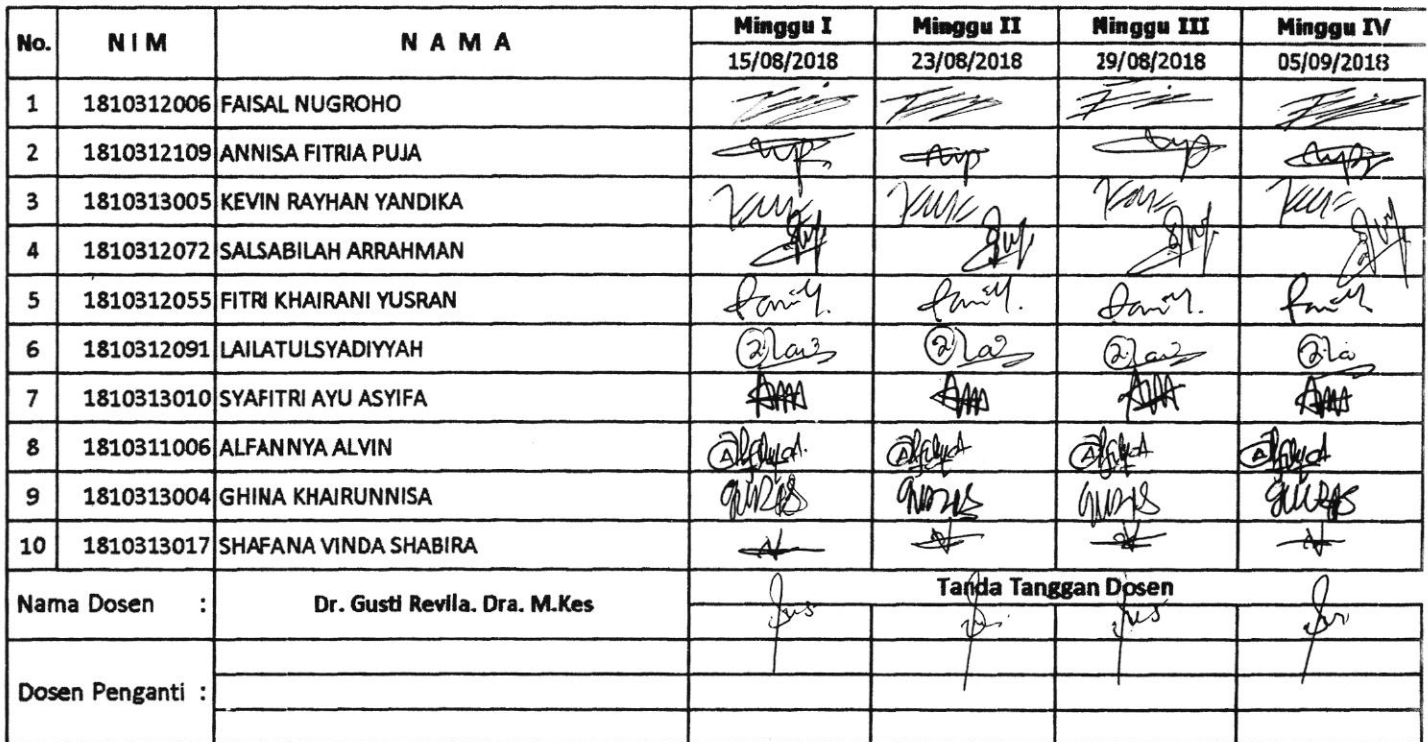 No. NIM NAMA Minggu I Minggu II Minggu III Minggu IV
15/08/2018 23/08/2018 29/08/2018 05/09/2018
1 1810312006 FAISAL NUGROHO
2 1810312109 ANNISA FITRIA PUJA
3 1810313005 KEVIN RAYHAN YANDIKA
4 1810312072 SALSABILAH ARRAHMAN
5 1810312055 FITRI KHAIRANI YUSRAN
6 1810312091 LAILATULSYADIYYAH
7 1810313010 SYAFITRI AYU ASYIFA
8 1810311006 ALFANNYA ALVIN
9 1810313004 GHINA KHAIRUNNISA
10 1810313017 SHAFANA VINDA SHABIRA
Nama Dosen : Dr. Gusti Revila. Dra. M.Kes Tanda Tanggan Dosen
Dosen Penganti :